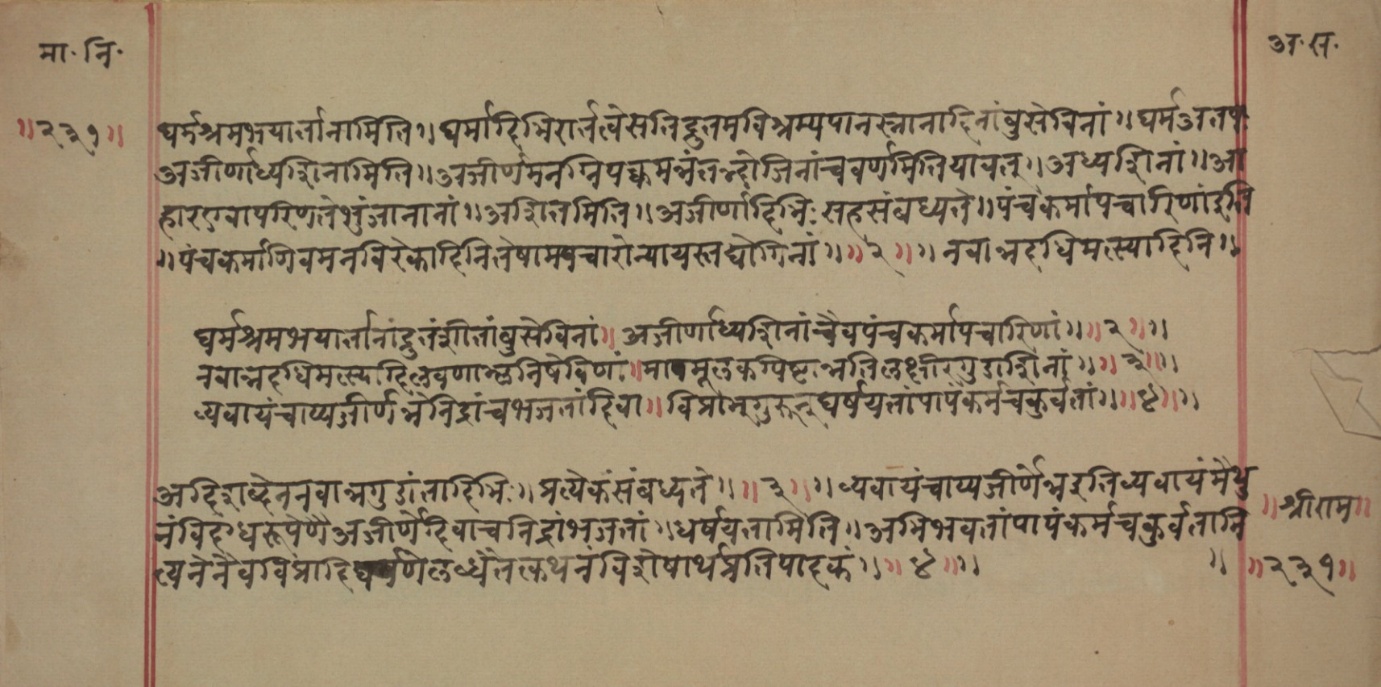 मा. नि.
अ. स.
॥२३१॥
घर्मश्रमभयार्तानामिति ॥ घर्मादिभिरार्तत्वेसतिद्रुतमविश्रम्यपानस्नानादिनांबुसेविनां ॥ घर्मआतपः
अजीर्णाध्यशिनामिति ॥ अजीर्णमनग्निपक्वमन्नंतद्भोजिनांच्चवर्णमितियावत् ॥ अध्यशिनां ॥ आ
हारएवापरिणतेभुंजानानां ॥ अशितमिति ॥ अजीर्णादिभिः सहसंबध्यते ॥ पंचकर्मापचारिणांइति
॥ पंचकर्माणिवमनविरेकादिनितेषामपचारोन्यायस्तद्योगिनां ॥ ॥२॥ ॥ नवान्नदधिमत्स्यादिनि ॥
घर्मश्रमभयार्तानांद्रुतंशीतांबुसेविनां ॥ अजीर्णाध्यशिनांचैवपंचकर्मापचारिणां ॥ ॥२॥ ॥
नवान्नदधिमत्स्यादिलवणाम्लनिषेविणां ॥ माषमूलकपिष्टान्नतिलक्षीरगुडाशिनां ॥ ॥३॥ ॥
व्यवायंचाप्यजीर्णेन्नेनिद्रांचभजतांदिवा ॥ विप्रान्गुरून्घर्षयतांपापंकर्मचकुर्वतां ॥ ॥४॥ ॥
अदिशब्देननवान्नगुडांतादिभिः ॥ प्रत्येकंसंबध्यते ॥ ॥३॥ ॥ व्यवायंचाप्यजीर्णेन्नइतिव्यवायंमैथु
नंविदग्धरूपेणैअजीर्णेदिवाचनिद्रांभजतां ॥ धर्षयतामिति ॥ अभिभवतांपापंकर्मचकुर्वतामि
त्यनेनैवविप्रादिघर्षणेलब्धेतत्कथनंविशेषार्थप्रतिपादकं ॥ ॥४॥ ॥ ॥
॥श्रीराम॥
॥२३१॥